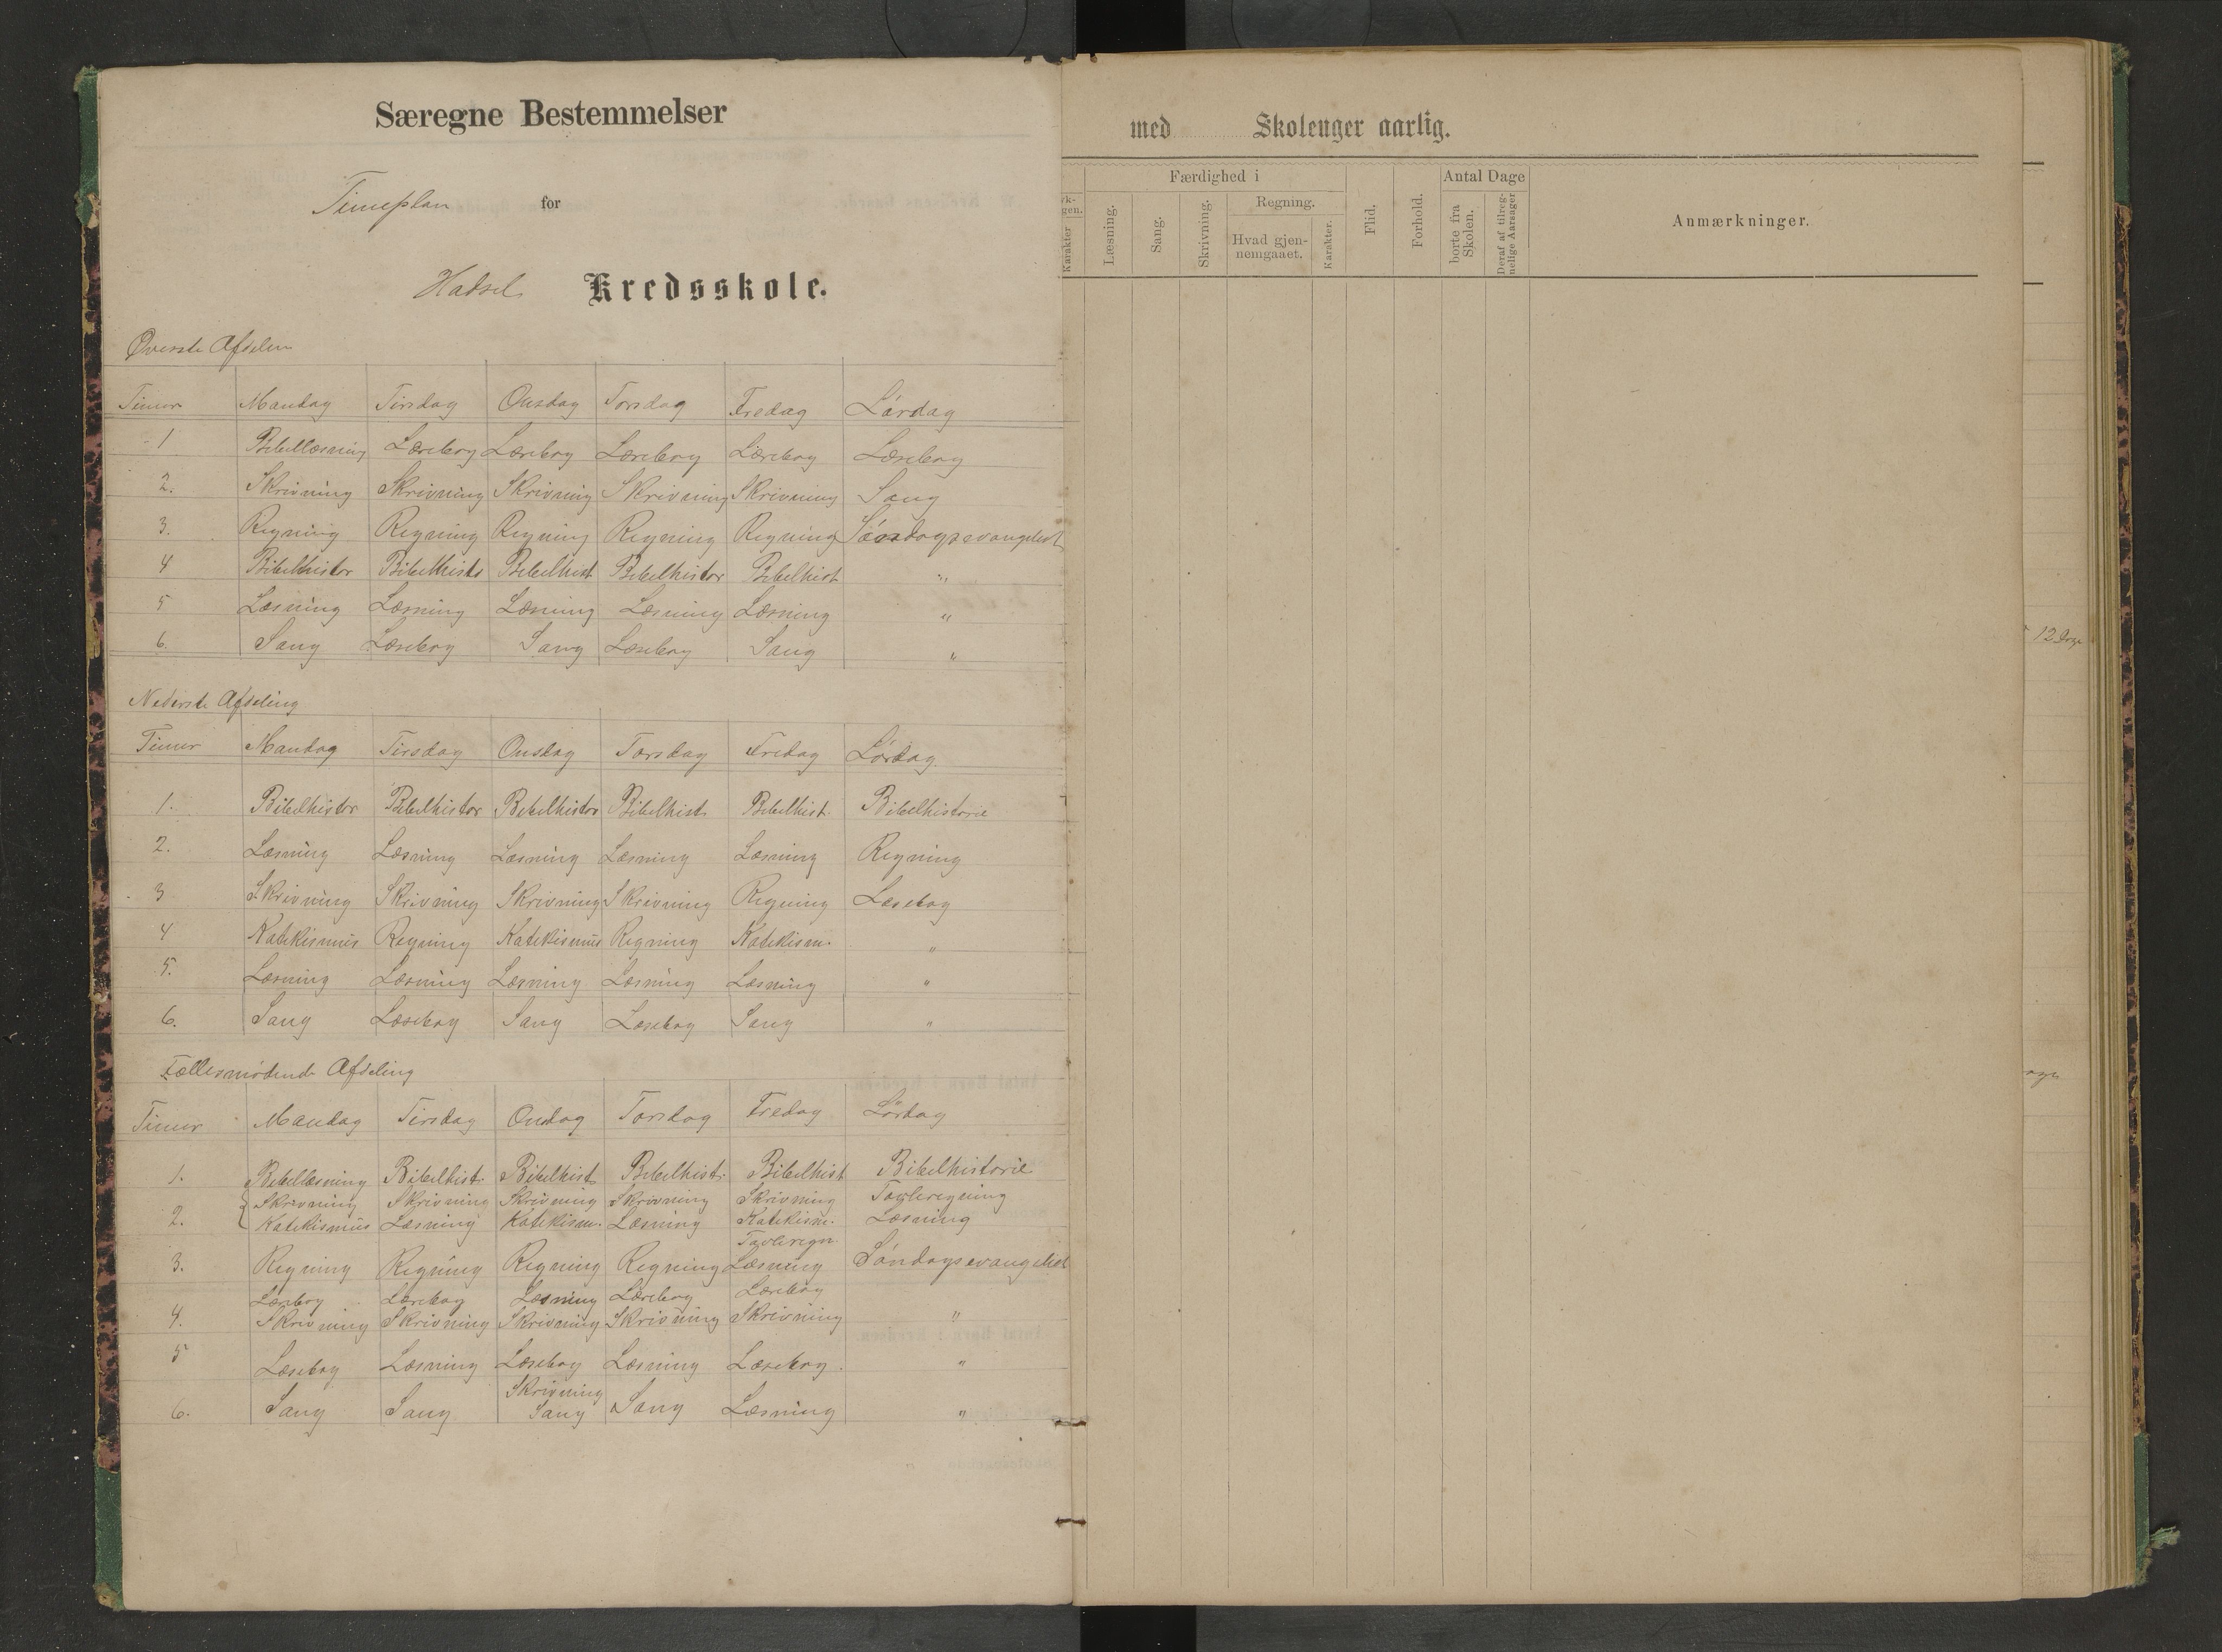 Særegne Bestemmelser
Timeplan for
Hadsel Kredsskole.
Øverste Afdelin
Timer Mandag Tirsdag Onsdag Torsdag Fredag Lördag
1 Bibellæsning Læsebog Læsebog Læsebog Læsebog Læsebog
2. Skrivning Skrivning Skrivning Skrivning Skrivning Sang
3. Regning Regning Regning Regning Regning Söndagsevangeliet
4 Bibelhistor Bibelhisto Bibelhist Bibelhistor Bibelhist "
5 Læsning Læsning Læsning Læsning Læsning "
6. Sang Læsebog Sang Læsebog Sang "
Nederste Afdeling
Timer Mandag Tirsdag Onsdag Torsdag Fredag Lördag
1. Bibelhistor Bibelhistor Bibelhistor Bibelhist. Bibelhist. Bibelhistorie
2. Læsning Læsning Læsning Læsning Læsning Regning
3 Skrivning Skrivning Skrivning Skrivning Regning Læsebog
4 Katekismus Regning Katekismus Regning Katekism. "
5. Læsning Læsning Læsning Læsning Læsning "
6. Sang Læsebog Sang Læsebog Sang "
Fællesmødende Afdeling
Timer Mandag Tirsdag Onsdag Torsdag Fredag Lördag
1. Bibellæsning Bibelhist. Bibelhist Bibelhist. Bibelhist Bibelhistorie
Skrivning Skrivning Skrivning Skrivning Skrivning Tavleregning
2. Katekismus Læsning Katekism. Læsning Katekism. Læsning
Tavleregn.
3. Regning Regning Regning Regning Læsning Söndagsevangeliet
Læsebog Læsebog Læsning Læsebog Læsebog
4. Skrivning Skrivning Skrivning Skrivning Skrivning "
5 Læsebog Læsning Læsebog Læsning Læsebog. "
Skrivning
6. Sang Sang Sang Sang Læsning "
med Skoleuger aarlig.
Færdighed i
Antal Dage
Karakter
Læsning.
Sang.
Skrivning.
Regning.
Hvad gjen-
nemgaaet.
Karakter.
Flid.
Forhold.
borte fra
Skolen.
Deraf af tilreg-
nelige Aarsager
Anmærkninger.
12